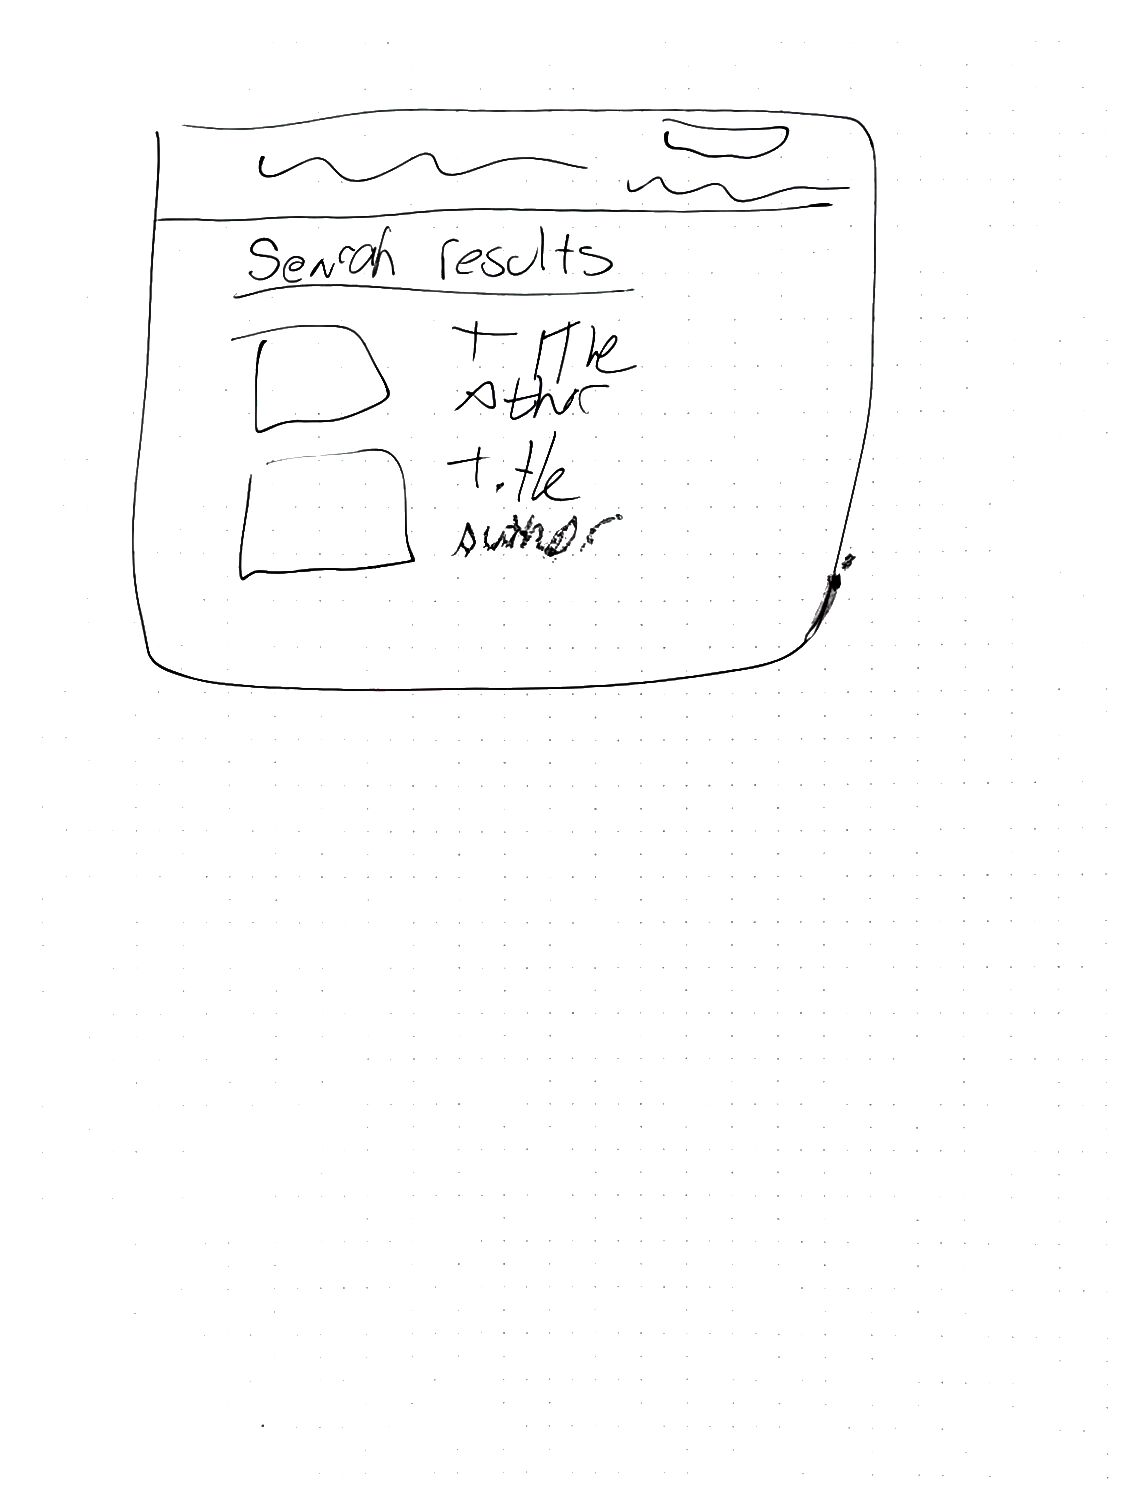 Search results
Title
Athr
Title
author